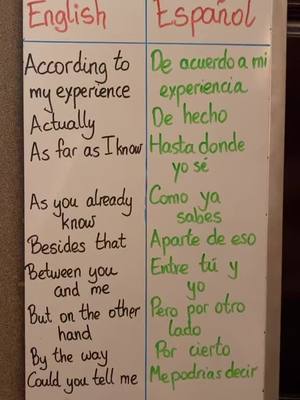 English
Español
According to
my experience
De acuerdo a mi
experiencia
Actually
De hecho
As far as I know
Hasta donde
yo sé
As you already
know
Como ya
sabes
Besides that
Aparte de eso
Between you
and me
Entre tú y
yo
But on the other
hand
Pero por otro
lado
By the way
Por cierto
Could you tell me
Me podrias decir